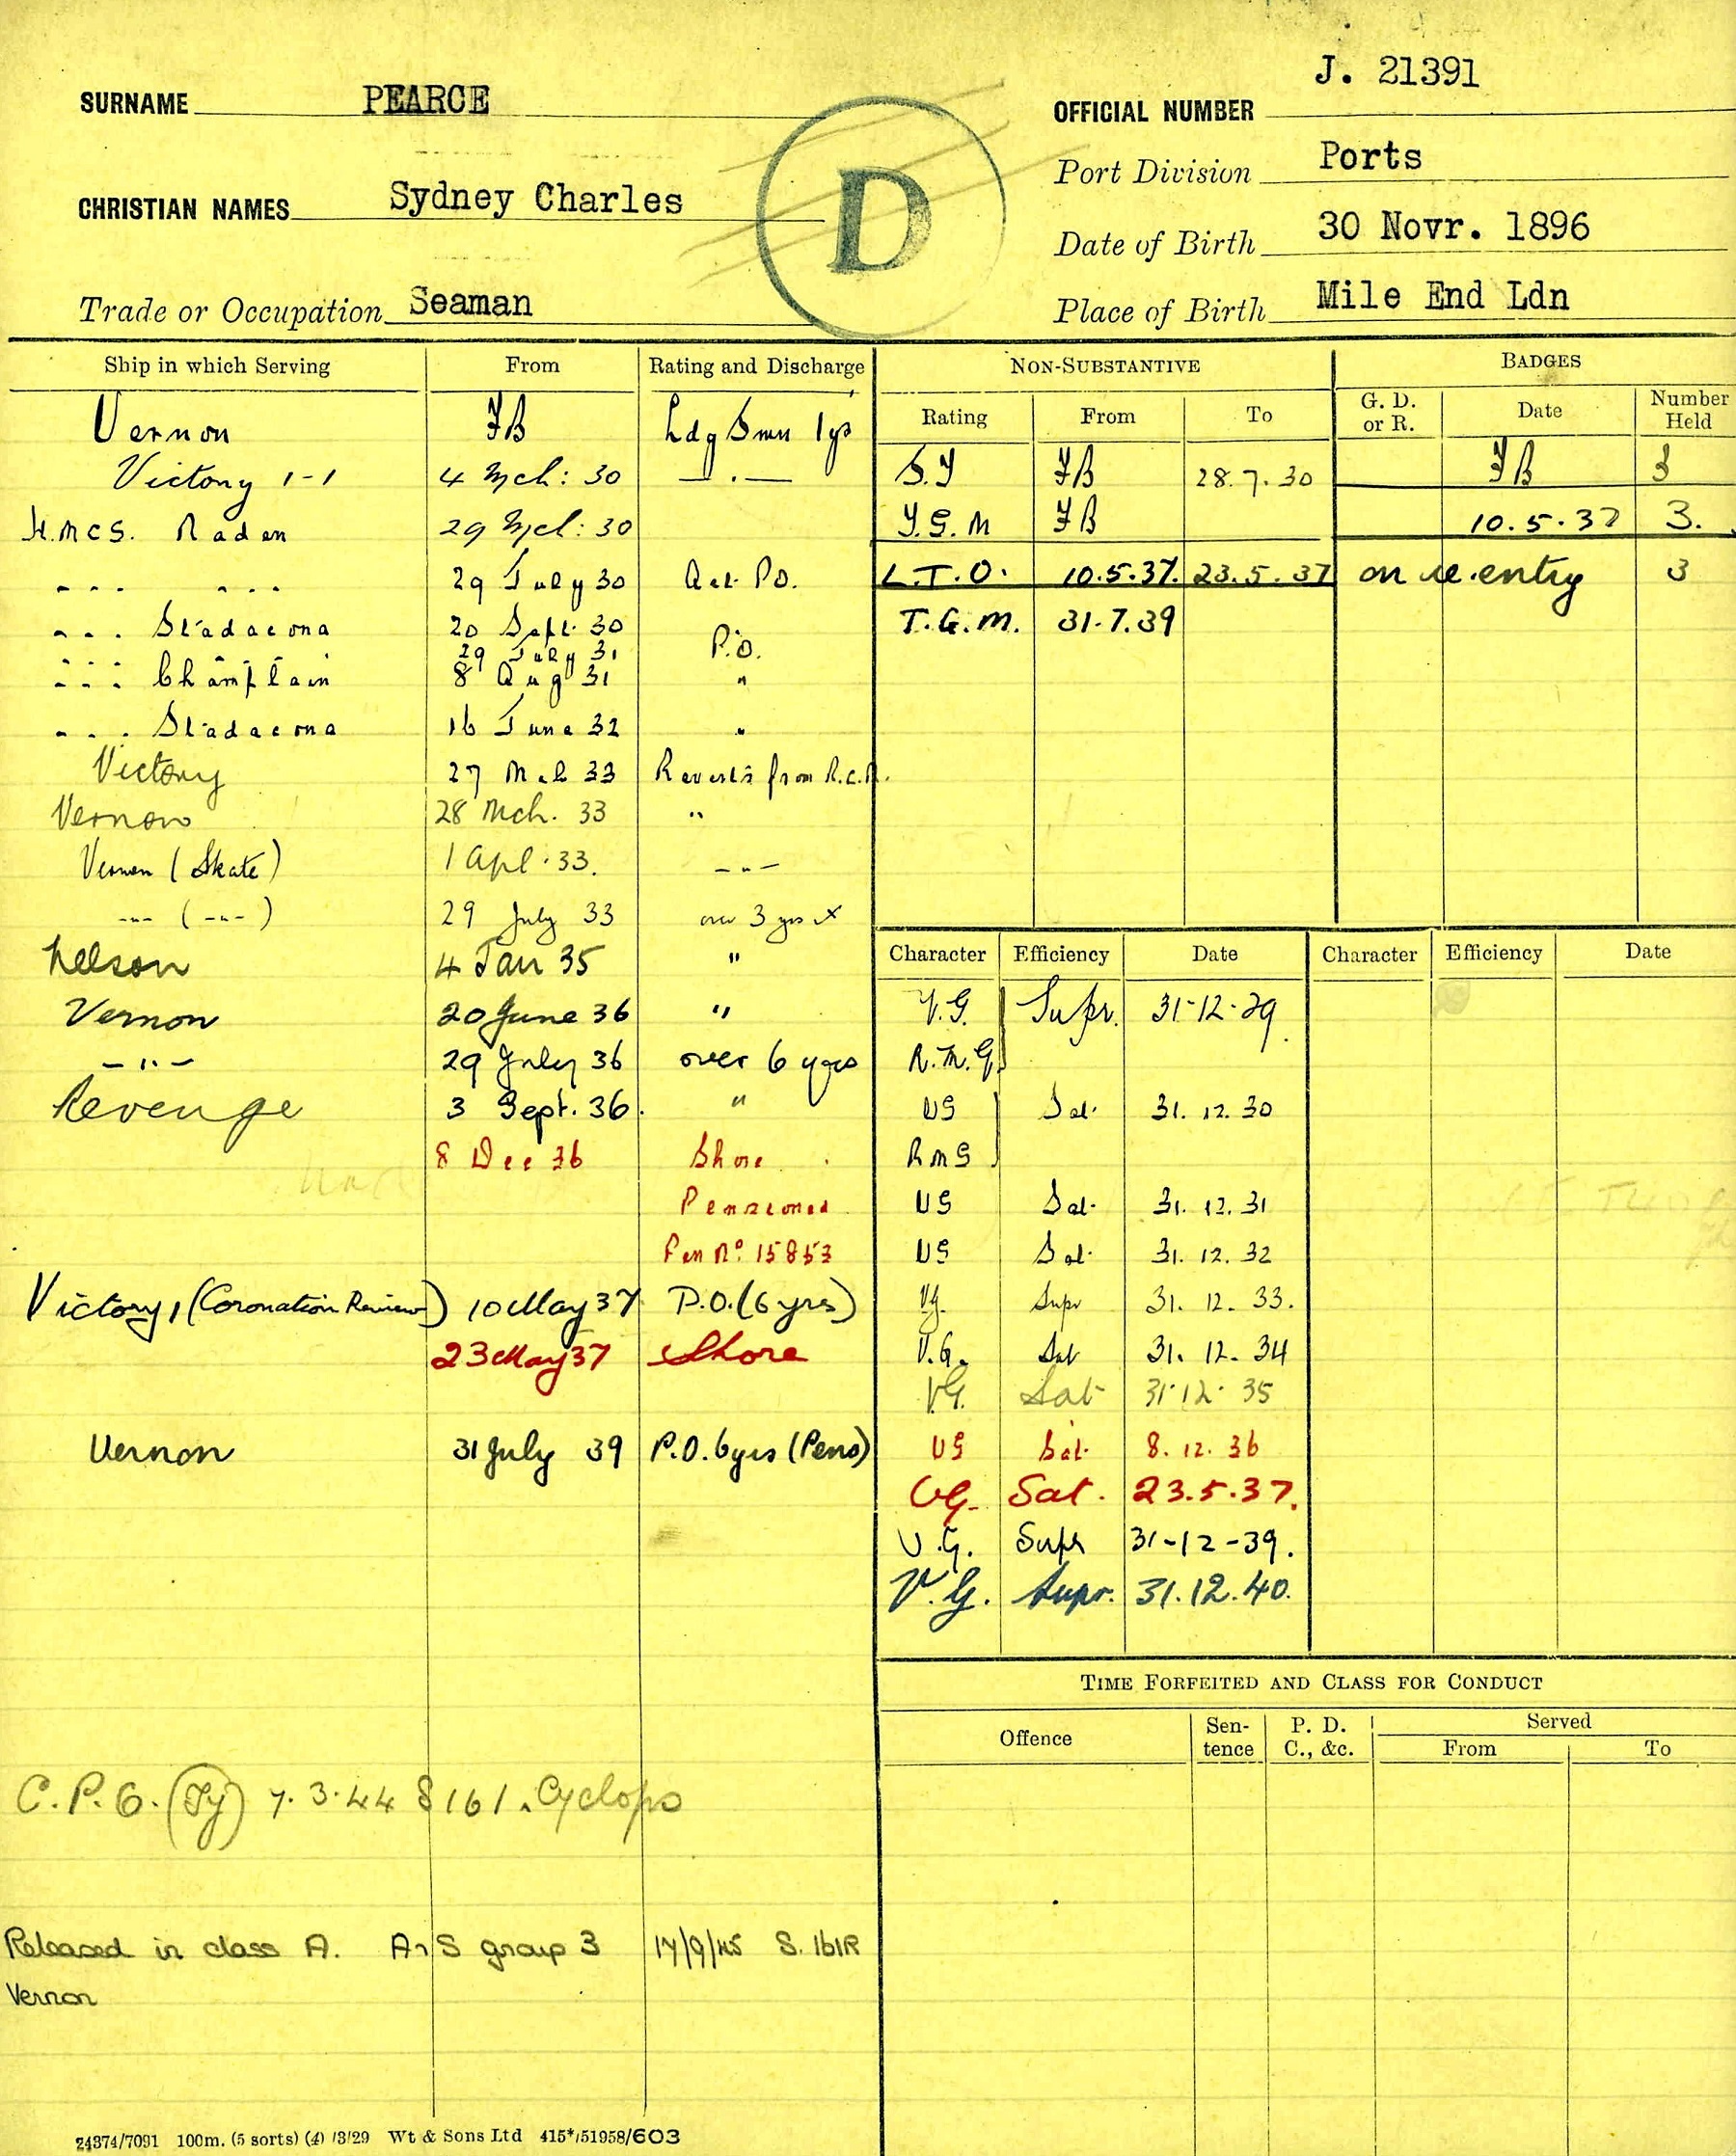 J. 21391
SURNAME PEARCE OFFICIAL NUMBER
D
Port Division Ports
CHRISTIAN NAMES Sydney Charles
Date of Birth 30 Novr. 1896
Trade or Occupation Seaman
Place of Birth Mile End Ldn
Ship in which Serving From Rating and Discharge
Vernon FB Ldg Smn 1yr
Victory 1-1 4 Mch: 30 — . —
H.M.C.S. Naden 29 Mch: 30
- - - - - - 29 July 30 Act. P.O.
- - - Stadacona 20 Sept. 30
29 July 31 P.O.
- - - Champlain 8 Aug 31 "
- - - Stadacona 16 June 32 "
Victory 27 Mch 33 Reverts from R.C.N.
Vernon 28 Mch. 33 "
Vernon (Skate) 1 Apl. 33. - " -
- " - (- " -) 29 July 33 over 3 yrs
Nelson 4 Jan 35 "
Vernon 20 June 36 "
- " - 29 July 36 over 6 years
Revenge 3 Sept. 36. "
8 Dec 36 Shore
Pensioned
Pen No. 15853
Victory 1 (Coronation Review) 10 May 37 P.O. (6 yrs)
23 May 37 Shore
Vernon 31 July 39 P.O. 6 yrs (Pens)
C.P.O. (Ty) 7.3.44 S161. Cyclops
Released in class A. A & S group 3 17/9/45 S. 161R
Vernon
24374/7091 100m. (5 sorts) (4) /3/29 Wt & Sons Ltd 415*/51958/603
NON-SUBSTANTIVE
Rating From To
S.T FB 28.7.30
T.G.M FB
L.T.O. 10.5.37. 23.5.37
T.G.M. 31.7.39
BADGES
G. D. or R. Date Number Held
FB 3
10.5.37 3.
on re.entry 3
Character Efficiency Date Character Efficiency Date
V.G. Supr. 31-12-29
R.M.G.
VG Sat. 31.12.30
RMG
VG Sat. 31.12.31
VG Sat. 31.12.32
VG. Supr 31.12.33.
V.G. Sat 31.12.34
VG. Sat 31.12.35
VG Sat. 8.12.36
VG. Sat. 23.5.37.
V.G. Supr 31-12-39.
V.G. Supr. 31.12.40.
TIME FORFEITED AND CLASS FOR CONDUCT
Offence Sentence P. D. C., &c. Served
From To